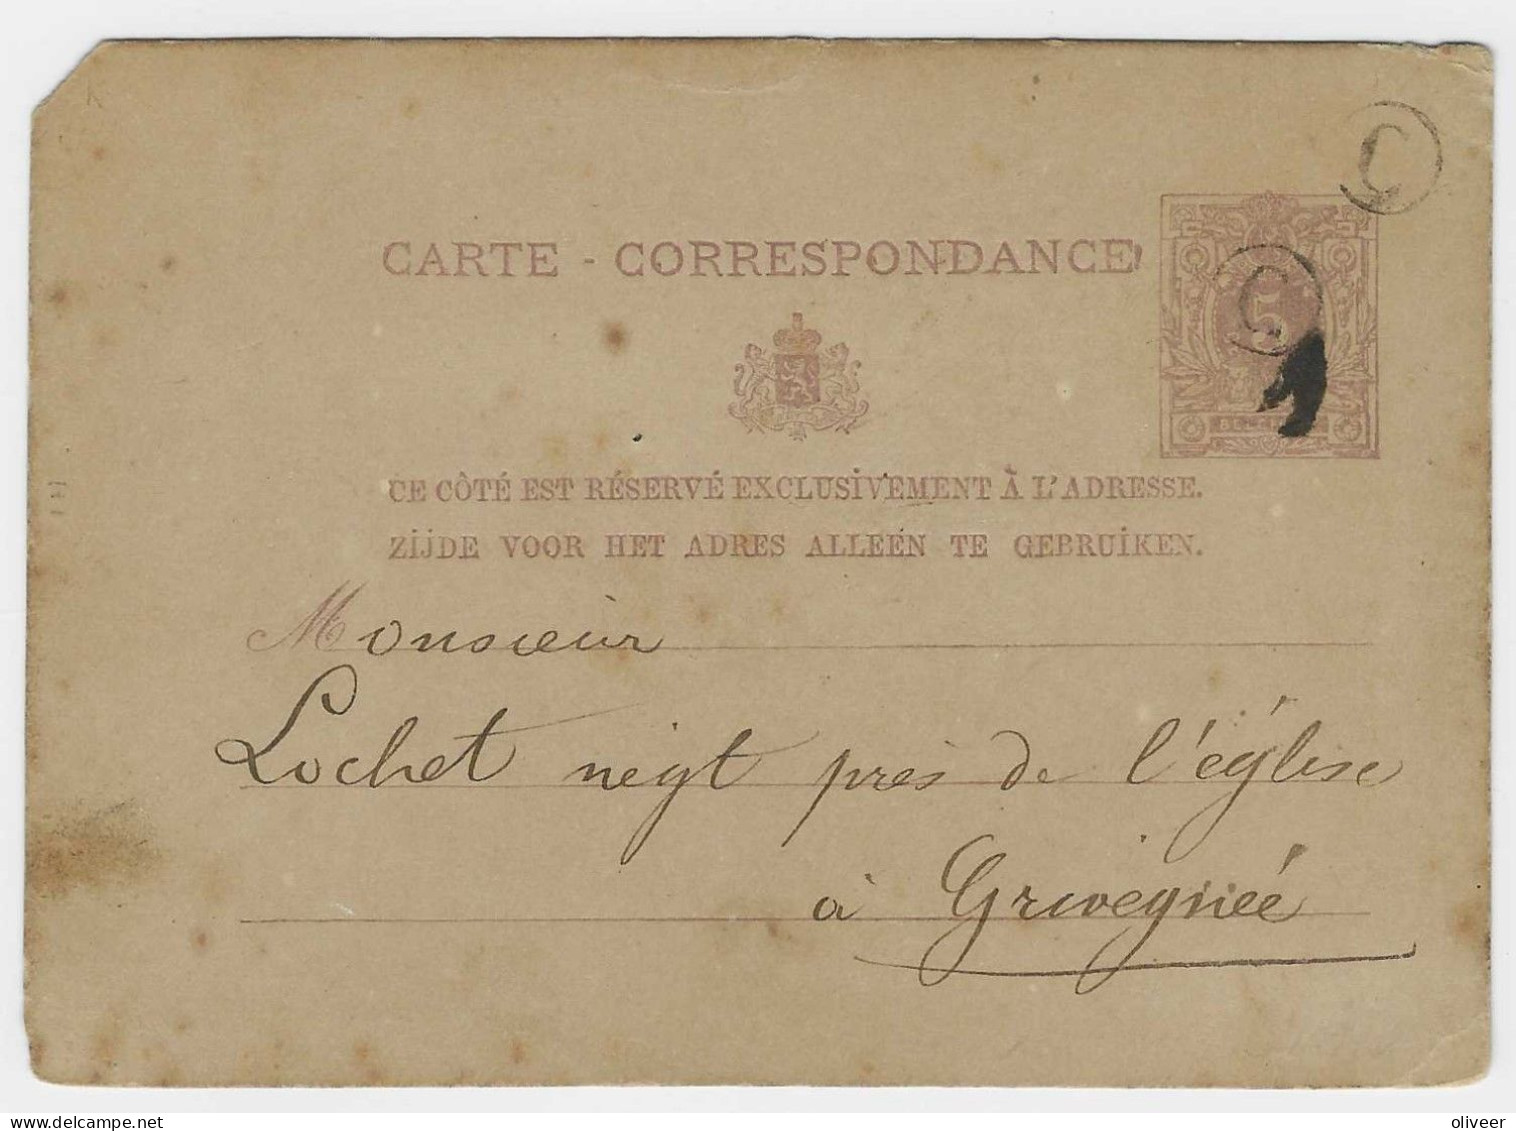 C
CARTE - CORRESPONDANCE
C
5
CE CÔTÉ EST RÉSERVÉ EXCLUSIVEMENT À L'ADRESSE.
ZIJDE VOOR HET ADRES ALLEEN TE GEBRUIKEN.
Monsieur
Lochet négt près de l'église
à Grivegnée
delcampe.net
oliveer